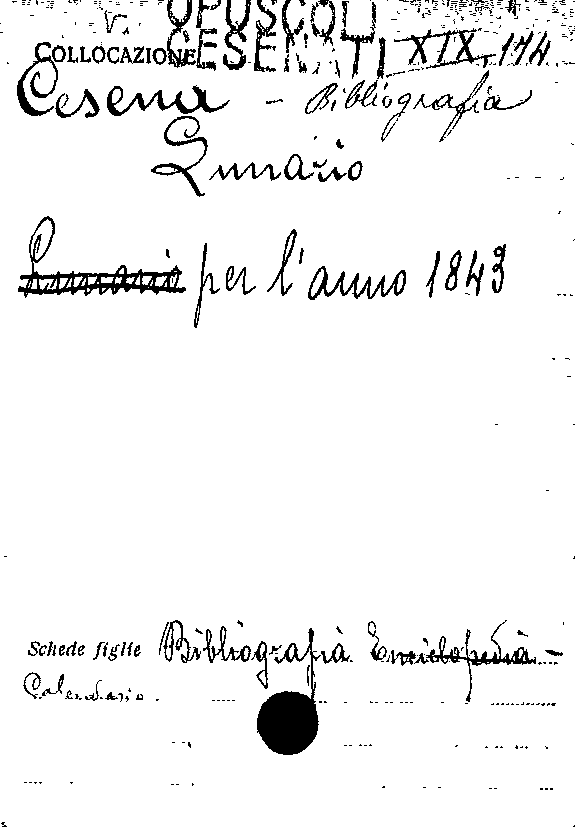 V. OPUSCOLI
COLLOCAZIONE CESENATI XIX, 174
Cesena - Bibliografia
Lunario
Lunario per l'anno 1843
Schede figlie Bibliografia Enciclopedia -
Calendario.